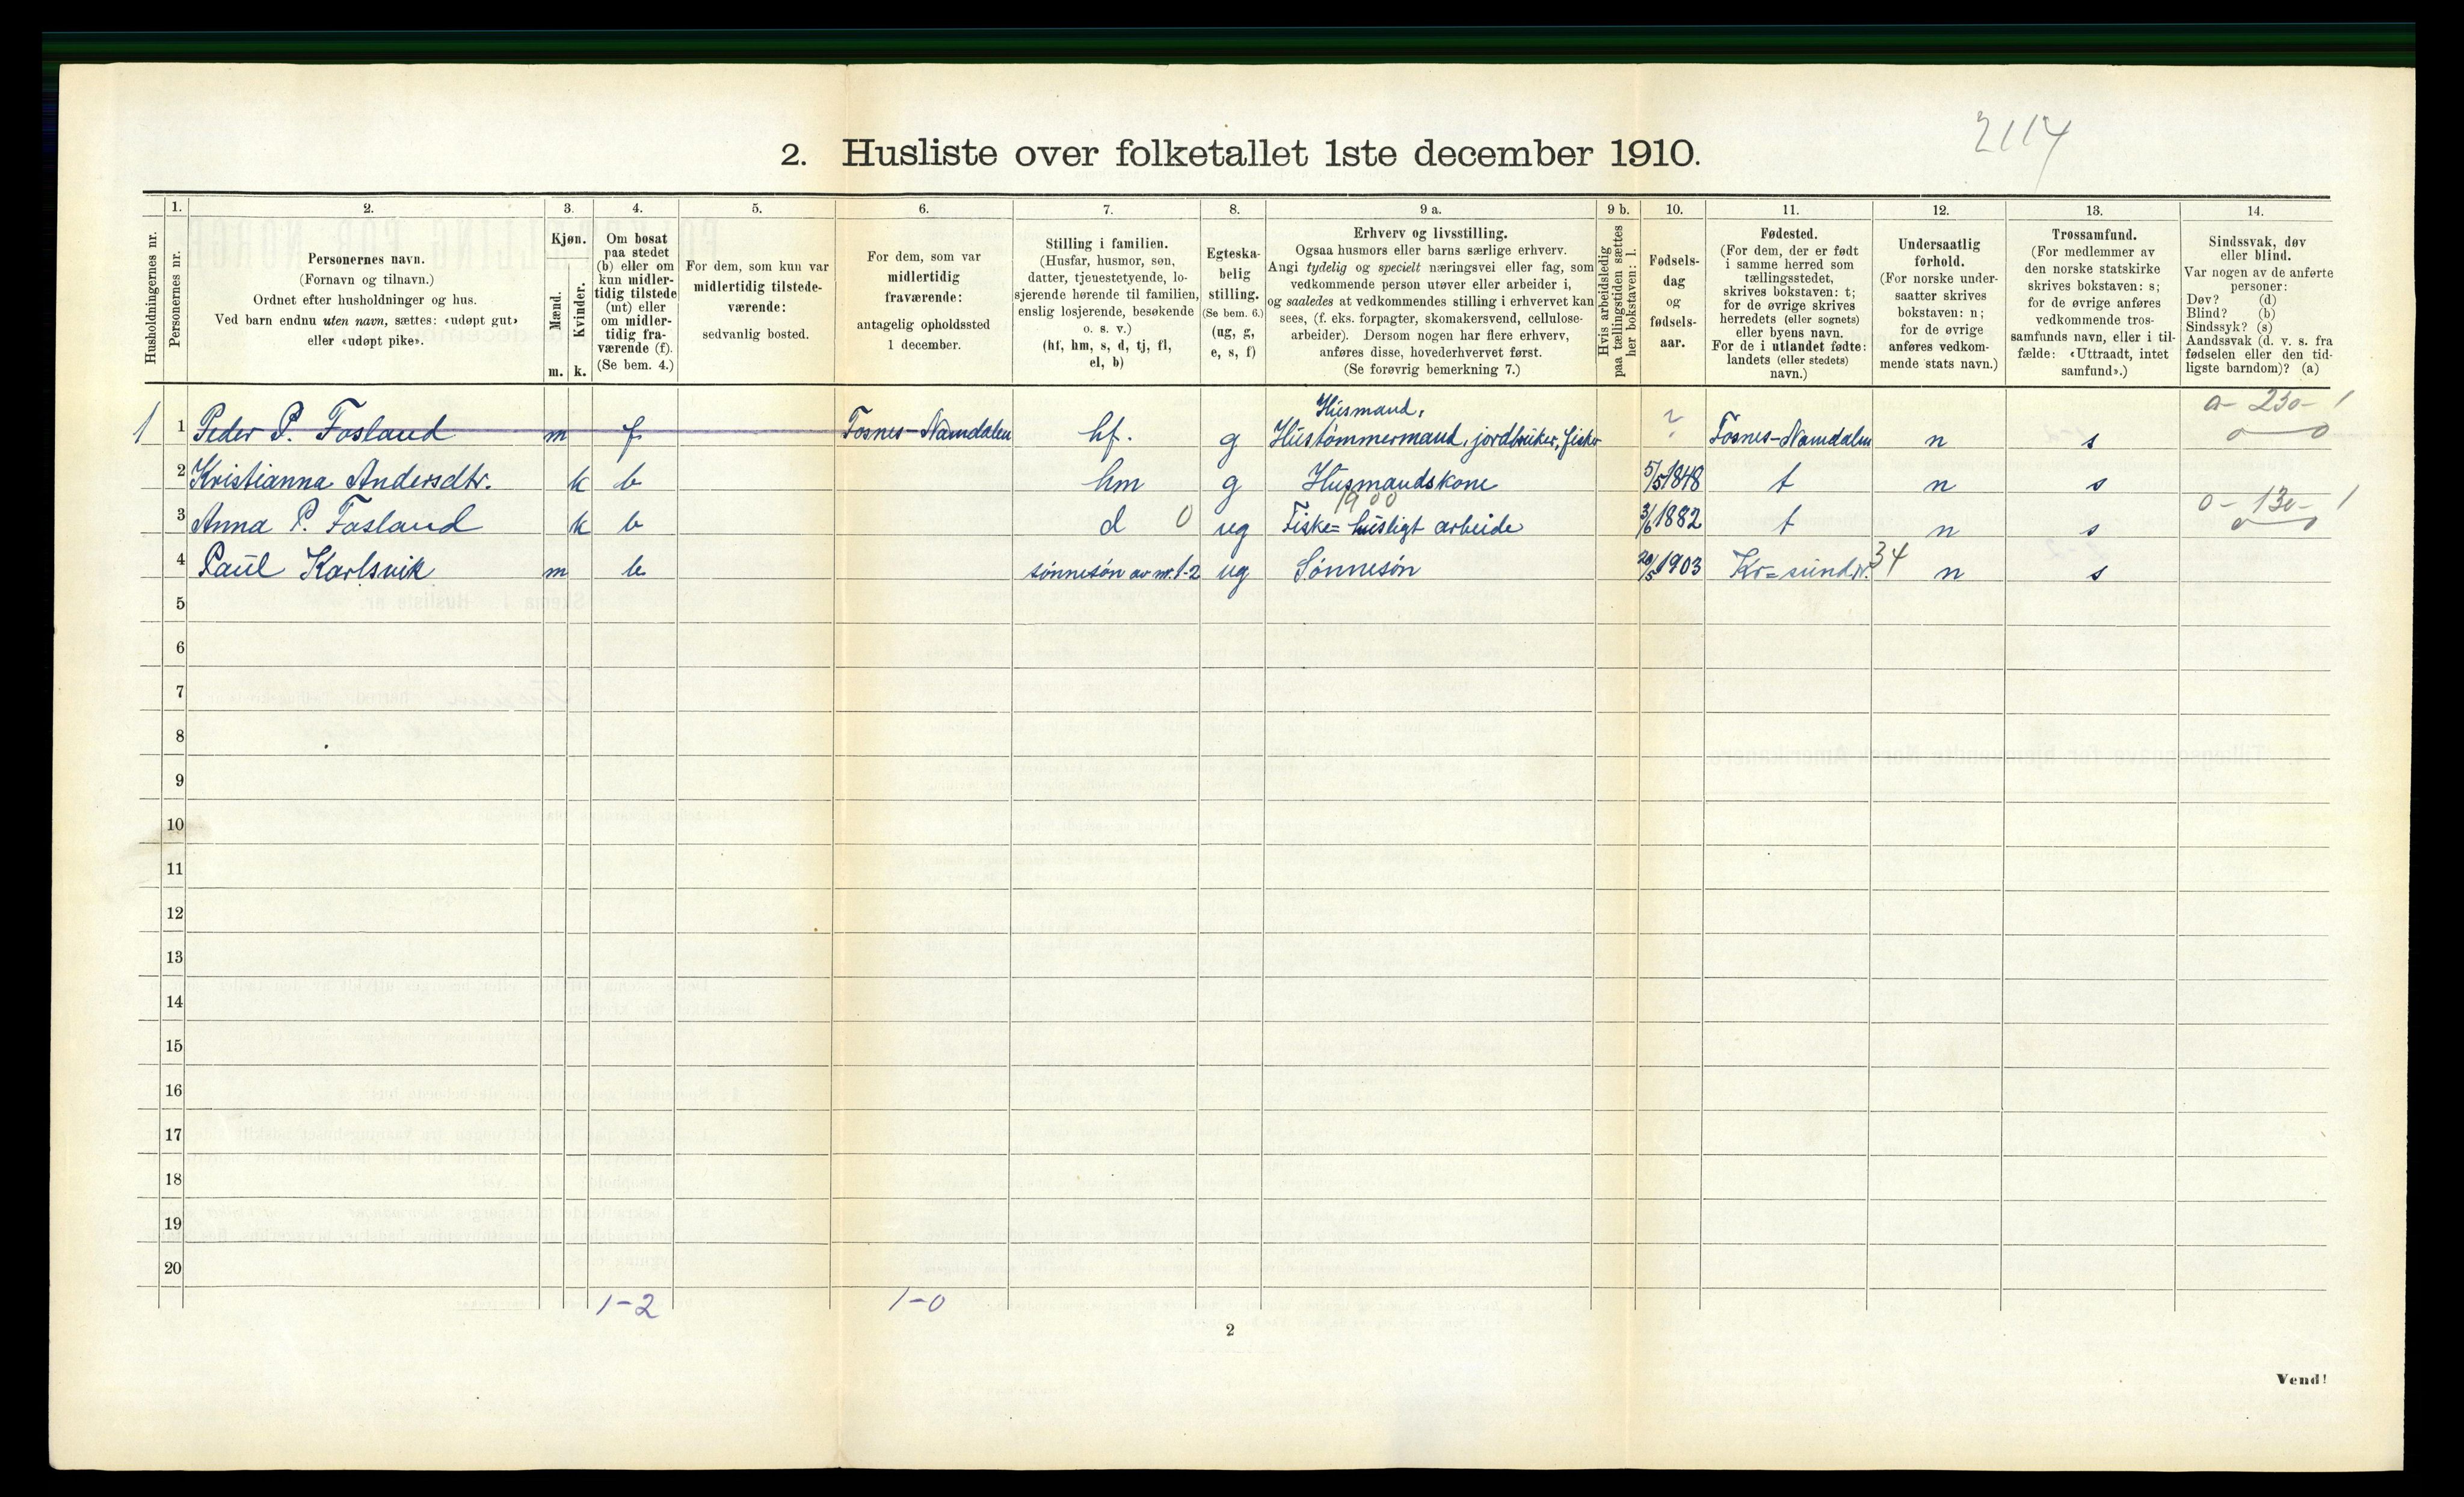 2114
2. Husliste over folketallet 1ste december 1910.
Husholdningernes nr.
1.
Personernes nr.
2.
Personernes navn.
(Fornavn og tilnavn.)
Ordnet efter husholdninger og hus.
Ved barn endnu uten navn, sættes: «udøpt gut»
eller «udøpt pike».
3.
Kjøn.
Mænd.
Kvinder.
m. k.
4.
Om bosat
paa stedet
(b) eller om
kun midler-
tidig tilstede
(mt) eller
om midler-
tidig fra-
værende (f).
(Se bem. 4.)
5.
For dem, som kun var
midlertidig tilstede-
værende:
sedvanlig bosted.
6.
For dem, som var
midlertidig
fraværende:
antagelig opholdssted
1 december.
7.
Stilling i familien.
(Husfar, husmor, søn,
datter, tjenestetyende, lo-
sjerende hørende til familien,
enslig losjerende, besøkende
o. s. v.)
(hf, hm, s, d, tj, fl,
el, b)
8.
Egteska-
belig
stilling.
(Se bem. 6.)
(ug, g,
e, s, f)
9 a.
Erhverv og livsstilling.
Ogsaa husmors eller barns særlige erhverv.
Angi tydelig og specielt næringsvei eller fag, som
vedkommende person utøver eller arbeider i,
og saaledes at vedkommendes stilling i erhvervet kan
sees, (f. eks. forpagter, skomakersvend, cellulose-
arbeider). Dersom nogen har flere erhverv,
anføres disse, hovederhvervet først.
(Se forøvrig bemerkning 7.)
9 b.
Hvis arbeidsledig
paa tællingstiden sættes
her bokstaven: l.
10.
Fødsels-
dag
og
fødsels-
aar.
11.
Fødested.
(For dem, der er født
i samme herred som
tællingsstedet,
skrives bokstaven: t;
for de øvrige skrives
herredets (eller sognets)
eller byens navn.
For de i utlandet fødte:
landets (eller stedets)
navn.)
12.
Undersaatlig
forhold.
(For norske under-
saatter skrives
bokstaven: n;
for de øvrige
anføres vedkom-
mende stats navn.)
13.
Trossamfund.
(For medlemmer av
den norske statskirke
skrives bokstaven: s;
for de øvrige anføres
vedkommende tros-
samfunds navn, eller i til-
fælde: «Uttraadt, intet
samfund».)
14.
Sindssvak, døv
eller blind.
Var nogen av de anførte
personer:
Døv? (d)
Blind? (b)
Sindssyk? (s)
Aandssvak (d. v. s. fra
fødselen eller den tid-
ligste barndom)? (a)
Husmand, 0- 230- 1
1 1 Peder P. Fosland m f Fosnes-Namdalen hf. g Hustømmermand, jordbruker, fisker ? Fosnes-Namdalen n s 0 0
2 Kristianna Andersdtr. k b hm g Husmandskone 5/5 1848 t n s
1900 0- 130- 1
3 Anna P. Fosland k b d 0 ug Fiske= husligt arbeide 3/6 1882 t n s 0 0
4 Paul Karlsvik m b sønnesøn av nr. 1-2 ug Sønnesøn 20/5 1903 Kr=sund N. 34 n s
5
6
7
8
9
10
11
12
13
14
15
16
17
18
19
20
1-2 1-0
2
Vend!